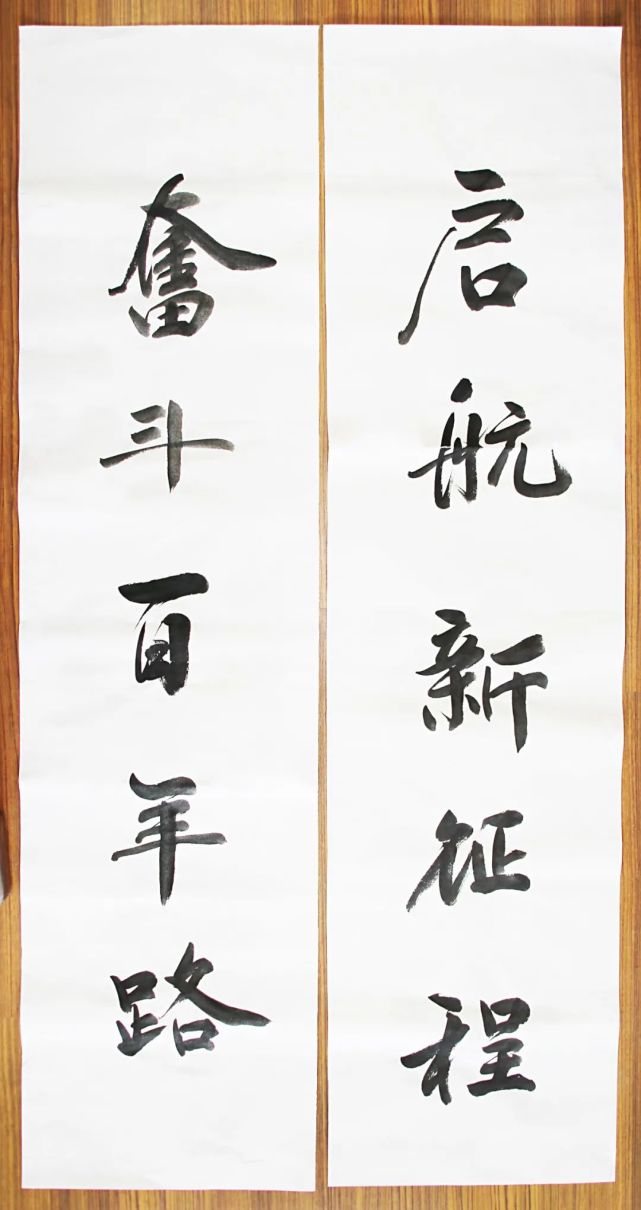 启航新征程
奋斗百年路